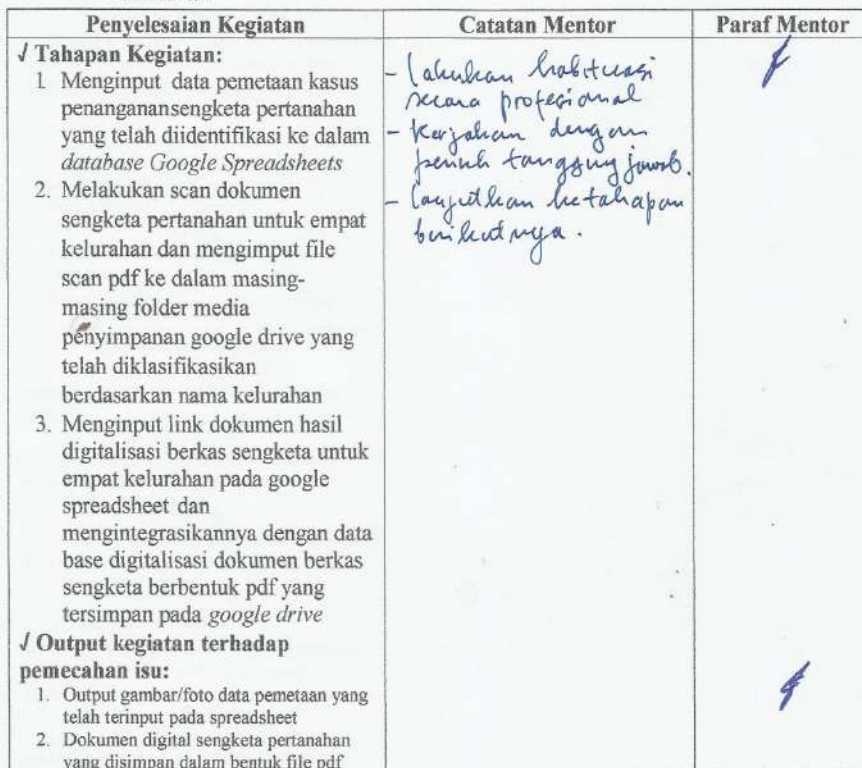 Penyelesaian Kegiatan
Catatan Mentor
Paraf Mentor
√ Tahapan Kegiatan:
1 Menginput data pemetaan kasus
penanganansengketa pertanahan
yang telah diidentifikasi ke dalam
database Google Spreadsheets
2. Melakukan scan dokumen
sengketa pertanahan untuk empat
kelurahan dan mengimput file
scan pdf ke dalam masing-
masing folder media
penyimpanan google drive yang
telah diklasifikasikan
berdasarkan nama kelurahan
3. Menginput link dokumen hasil
digitalisasi berkas sengketa untuk
empat kelurahan pada google
spreadsheet dan
mengintegrasikannya dengan data
base digitalisasi dokumen berkas
sengketa berbentuk pdf yang
tersimpan pada google drive
√ Output kegiatan terhadap
pemecahan isu:
1. Output gambar/foto data pemetaan yang
telah terinput pada spreadsheet
2. Dokumen digital sengketa pertanahan
yang disimpan dalam bentuk file pdf
- Lakukan habituasi
secara profesional
- Kerjakan dengan
penuh tanggung jawab.
- Lanjutkan ketahapan
berikutnya.